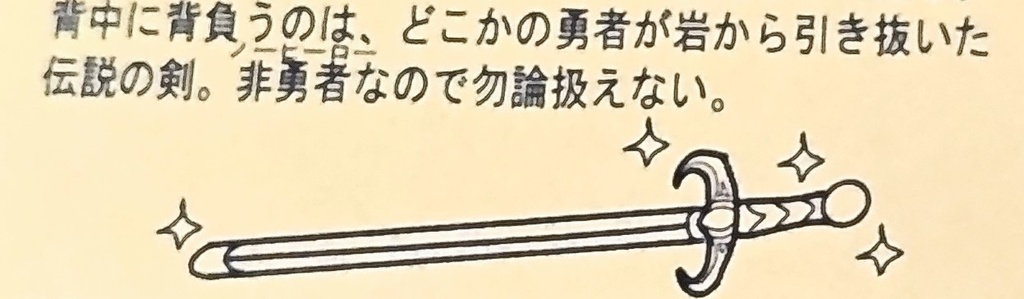 背中に背負うのは、どこかの勇者が岩から引き抜いた
ノーヒーロー
伝説の剣。非勇者なので勿論扱えない。